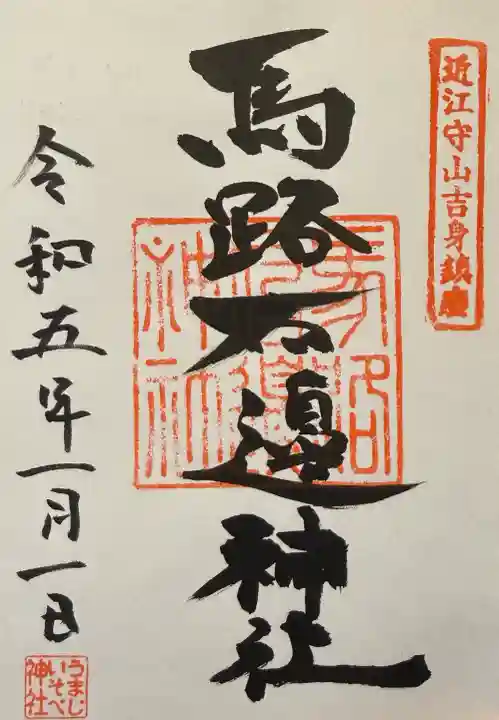 近江守山吉身鎮座
馬路石邉神社
馬路石邊神社
令和五年一月一日
うまじ
いそべ
神社